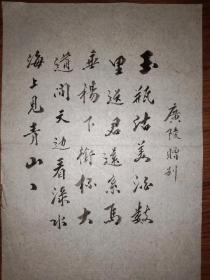 廣陵贈别
玉瓶沽美酒數
里送君還系馬
垂楊下銜杯大
道間天边看渌水
海上見青山、